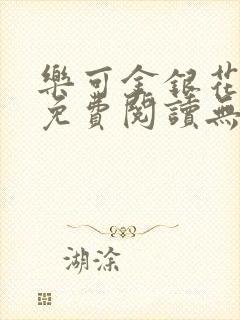 樂可金銀花
免費閱讀無
湖涂